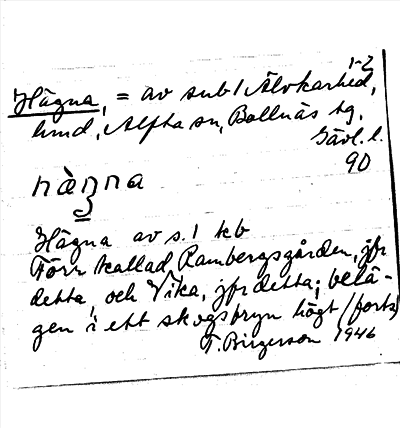 1-2
Hägna, = av sub1 Älvkarhed,
hmd, Alfta sn, Bollnäs tg,
Gävl. l.
90
Hägna av s. 1 kb
Förr kallad Rambergsgården, jfr
detta, och Vika, jfr detta; belä-
gen i ett skogsbryn högt (forts)
F. Birgerson 1946